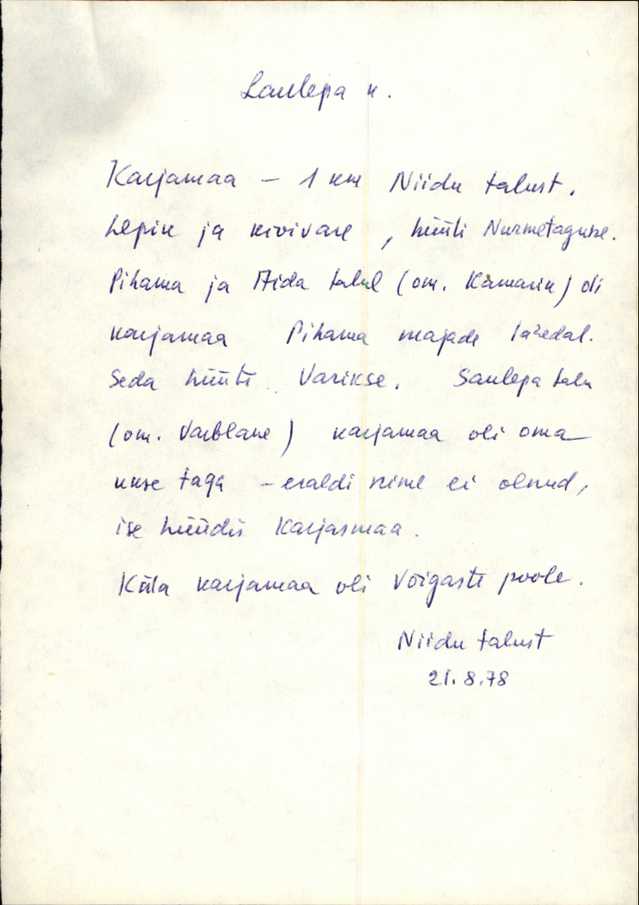 Saulepa k.
Karjamaa – 1 km Niidu talust.
Lepik ja kivivare, hüüti Nurmetaguse.
Pihama ja Aida talul (om. Kamarik) oli
karjamaa Pihama majade lähedal.
Seda hüüti Varikse. Saulepa talu
(om. Varblane) karjamaa oli oma
ukse taga – eraldi nime ei olnud,
ise hüüdis Karjasmaa.
Küla karjamaa oli Voigaste poole.
Niidu talust
21.8.78